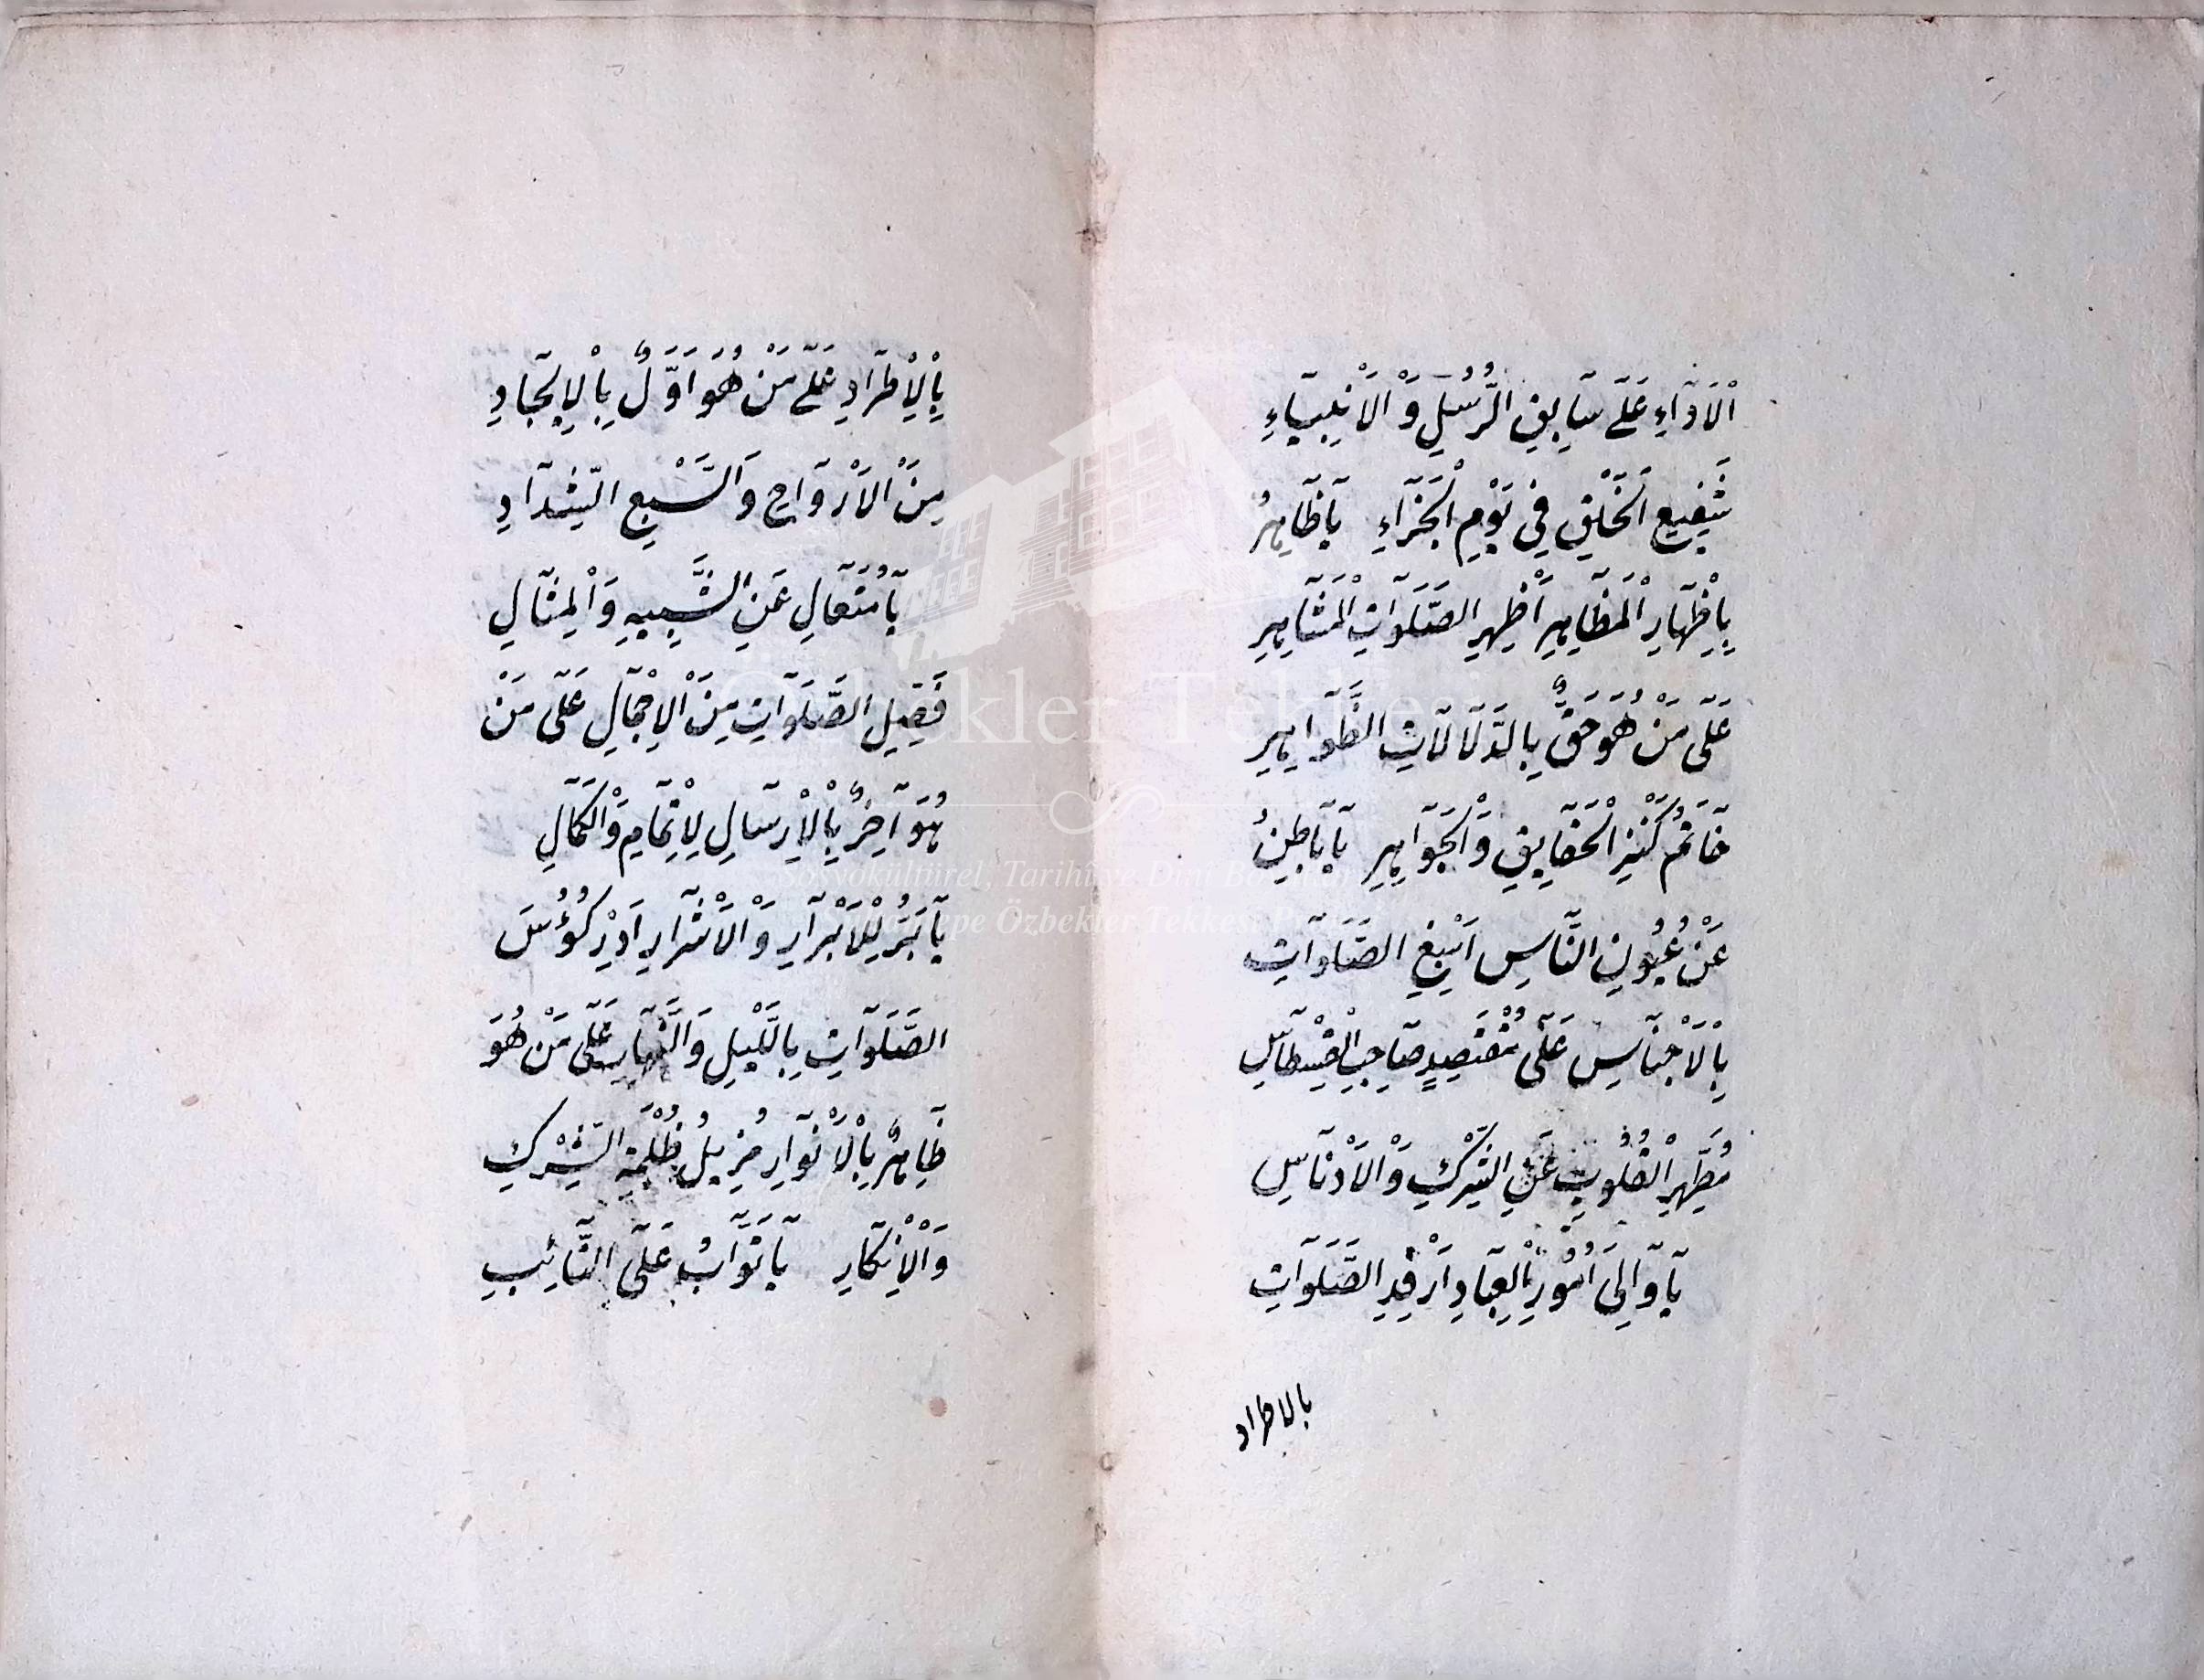 اْلاَدَآءِ عَلَى سَابِقِ الرُّسُلِ وَاْلاَنْبِيَآءِ
شَفِيعِ الْخَلْقِ فِي يَوْمِ الْجَزَآءِ يَا ظَاهِرُ
بِاِظْهَارِ الْمَظَاهِرِ اَظْهِرِ الصَّلَوَاتِ الْمَشَاهِرِ
عَلَى مَنْ هُوَ حَقٌّ بِالدَّلَالَاتِ الظَّوَاهِرِ
خَاتَمُ كَنْزِ الْحَقَايِقِ وَالْجَوَاهِرِ يَا بَاطِنُ
عَنْ عُيُونِ النَّاسِ اَسْبِغِ الصَّلَوَاتِ
بِاْلاَجْنَاسِ عَلَى مُقْتَصِدٍ صَاحِبِ الْقِسْطَاسِ
مُطَهِّرِ الْقُلُوبِ عَنِ الشِّرْكِ وَاْلاَدْنَاسِ
يَا وَالِىَ اُمُورِ الْعِبَادِ اَرْفِدِ الصَّلَوَاتِ
بالاطراد
بِاْلاِطْرَادِ عَلَى مَنْ هُوَ اَوَّلٌ بِاْلاِيجَادِ
مِنَ اْلاَرْوَاحِ وَالسَّبْعِ الشِّدَادِ
يَا مُتَعَالِ عَنِ الشَّبِيهِ وَالْمِثَالِ
فَصِّلِ الصَّلَوَاتِ مِنَ اْلاِجْمَالِ عَلَى مَنْ
هُوَ آخِرٌ بِاْلاِرْسَالِ لِاِتْمَامِ وَالْكَمَالِ
يَا بَرُّ لِلْاَبْرَارِ وَاْلاَشْرَارِ اَدِرْ كُؤُسَ
الصَّلَوَاتِ بِاللَّيْلِ وَالنَّهَارِ عَلَى مَنْ هُوَ
ظَاهِرٌ بِاْلاَنْوَارِ مُزِيلُ ظُلْمَةِ الشِّرْكِ
وَاْلاِنْكَارِ يَا تَوَّابُ عَلَى التَّائِبِ
Özbekler Tekkesi